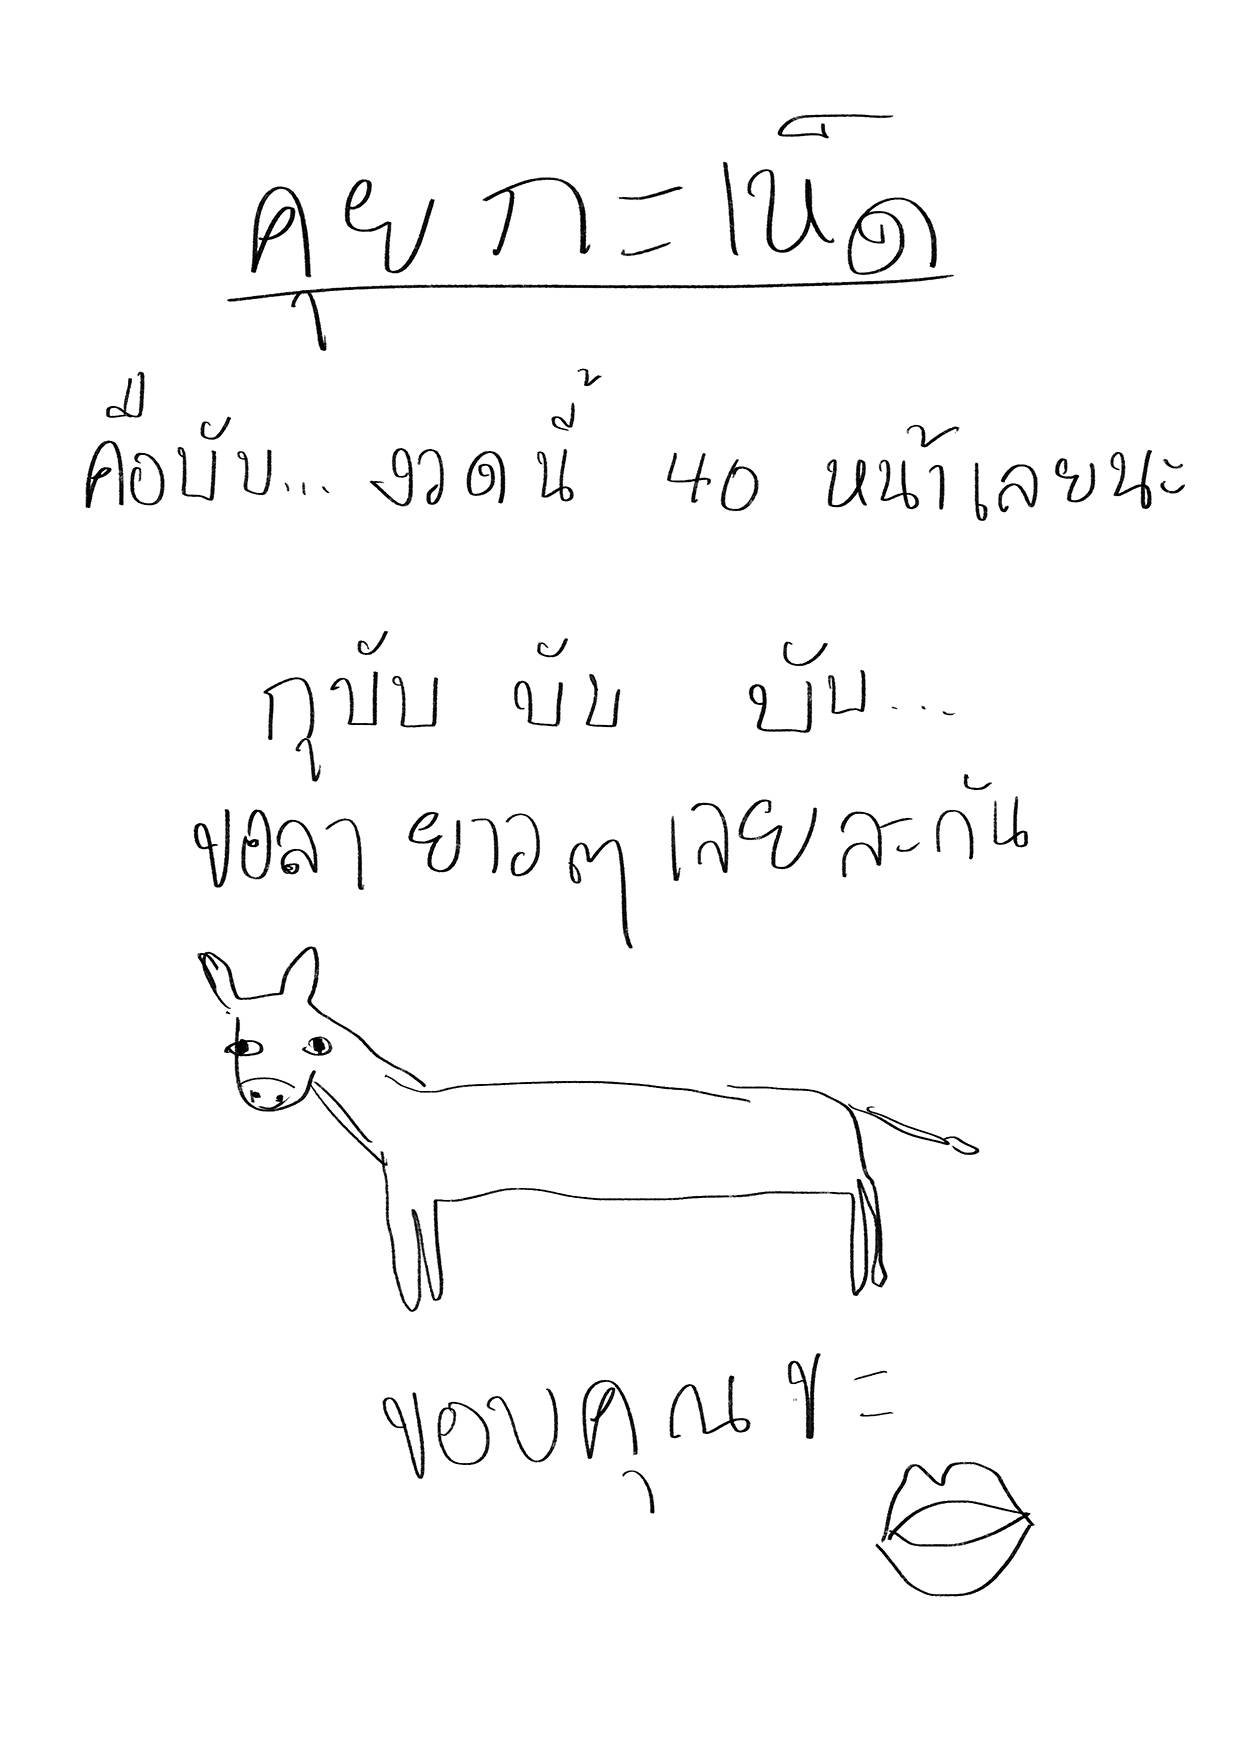 คุยกะเน็ด
คือบับ... งวดนี้ 40 หน้าเลยนะ
กุบับ บับ บับ...
ขอลา ยาวๆ เลยละกัน
ขอบคุณข=